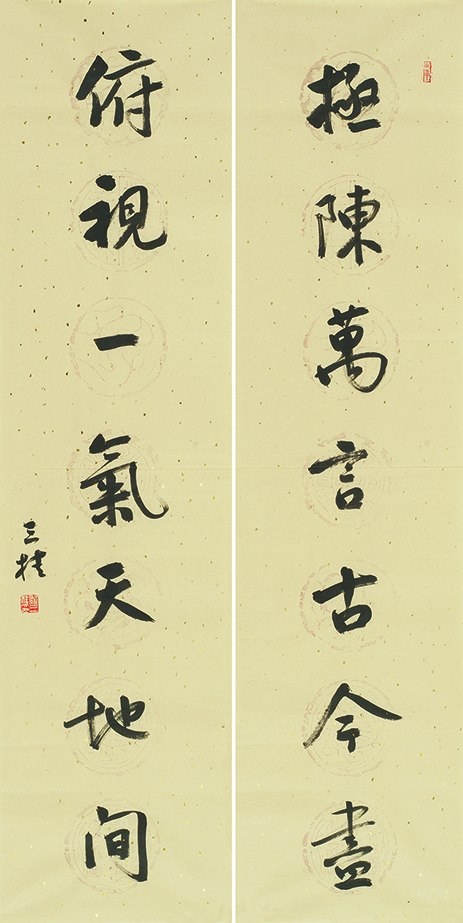 極陳萬言古今盡
俯視一氣天地间
三桂